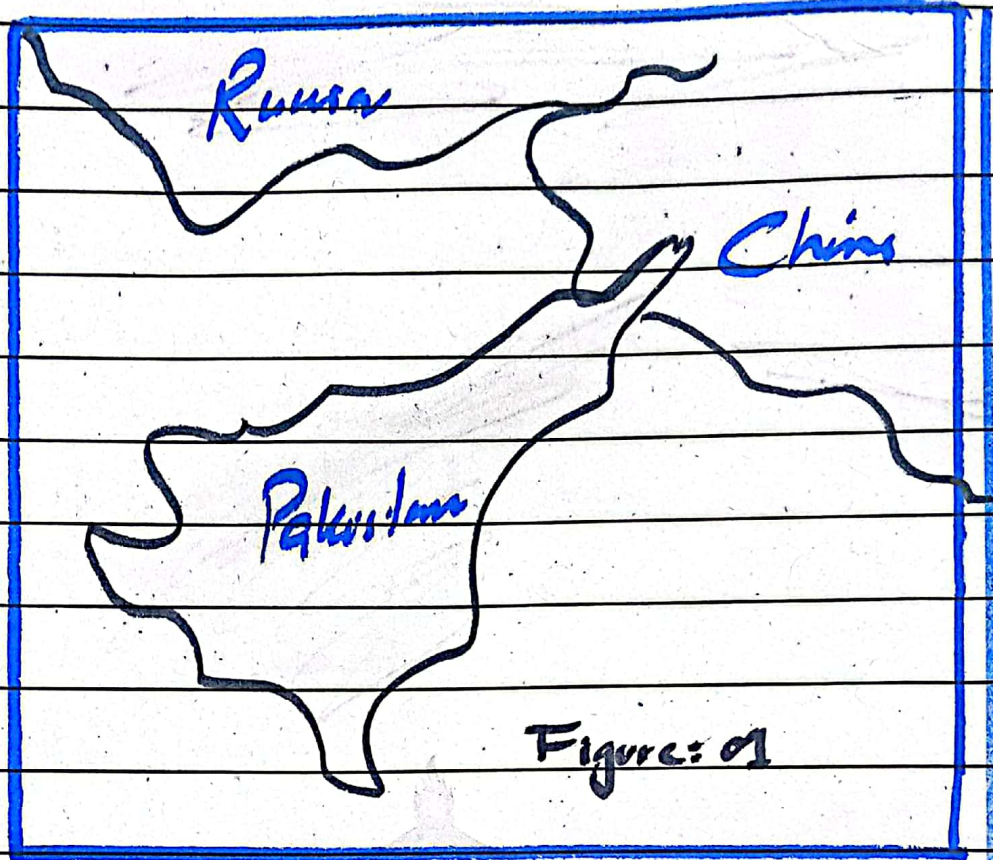 Russia
China
Pakistan
Figure: 01